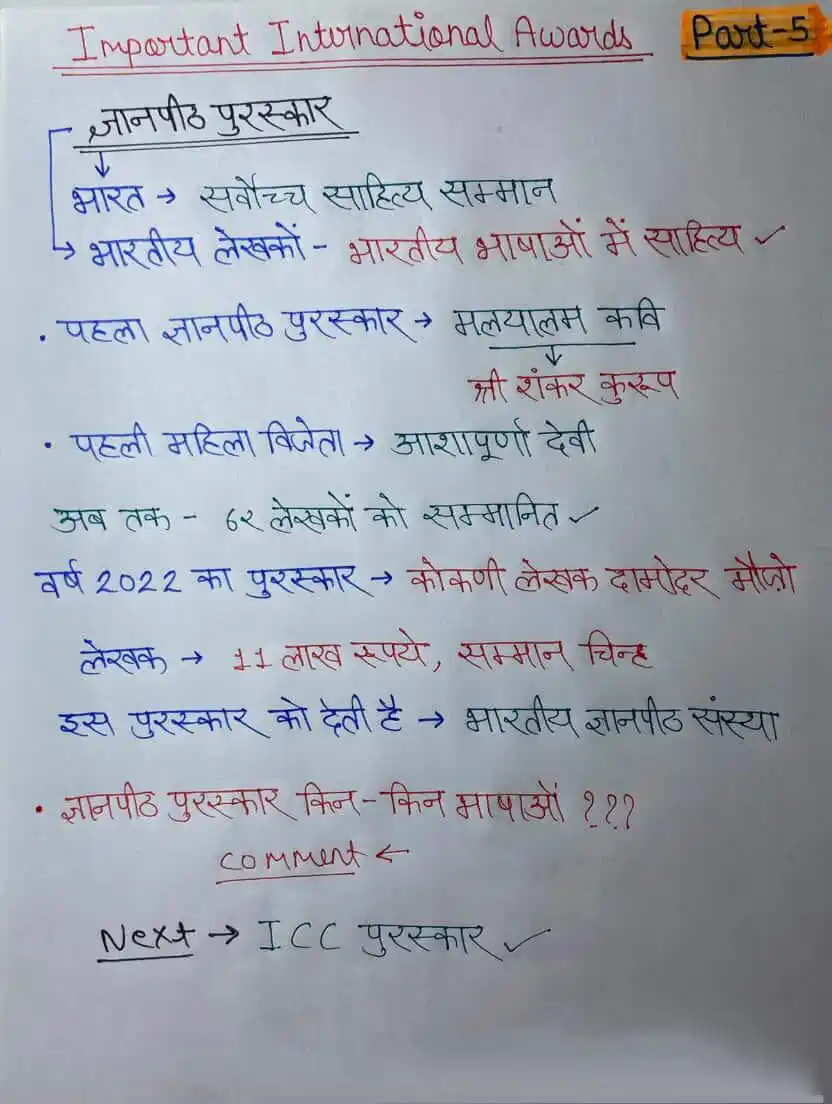 Important International Awards Part-5
ज्ञानपीठ पुरस्कार
भारत → सर्वोच्च साहित्य सम्मान
→ भारतीय लेखकों - भारतीय भाषाओं में साहित्य ✓
• पहला ज्ञानपीठ पुरस्कार → मलयालम कवि
श्री शंकर कुरूप
• पहली महिला विजेता → आशापूर्णा देवी
अब तक - 62 लेखकों को सम्मानित ✓
वर्ष 2022 का पुरस्कार → कोकणी लेखक दामोदर मौज़ो
लेखक → 11 लाख रूपये, सम्मान चिन्ह
इस पुरस्कार को देती है → भारतीय ज्ञानपीठ संस्था
• ज्ञानपीठ पुरस्कार किन-किन भाषाओं ???
comment ←
Next → ICC पुरस्कार ✓